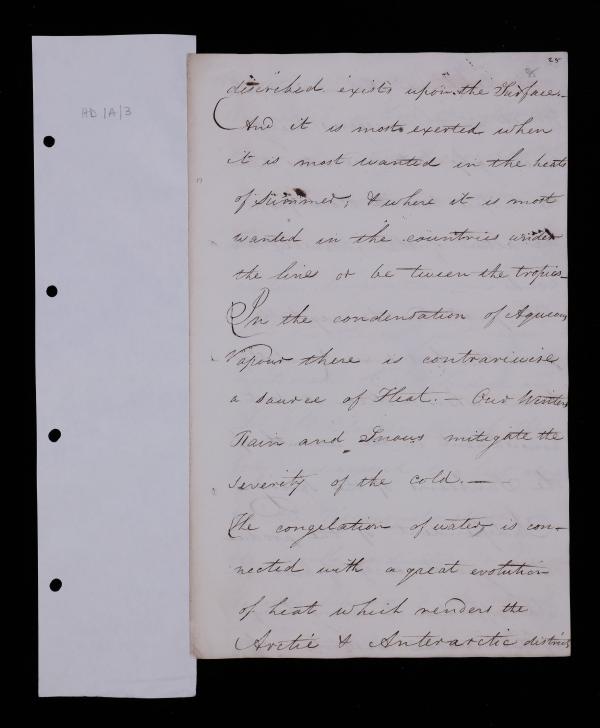 HD/A/3
25
described exists upon the Surface.
And it is most exerted when
it is most wanted in the heats
of Summer; & where it is most
wanted in the countries under
the line or be tween the tropics—
In the condensation of Aqueous
Vapour there is contrariwise
a source of Heat. — Our Winter
Rain and Snows mitigate the
severity of the cold. —
The congelation of water, is con-
nected with a great evolution
of heat which renders the
Arctic & Anterarctic districts